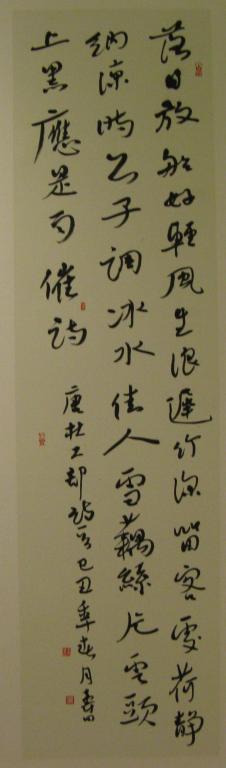 落日放船好輕風生浪遲竹深留客處荷靜
納涼時公子調冰水佳人雪藕絲片雲頭
上黑應是雨催詩
唐杜工部詩己丑年春月